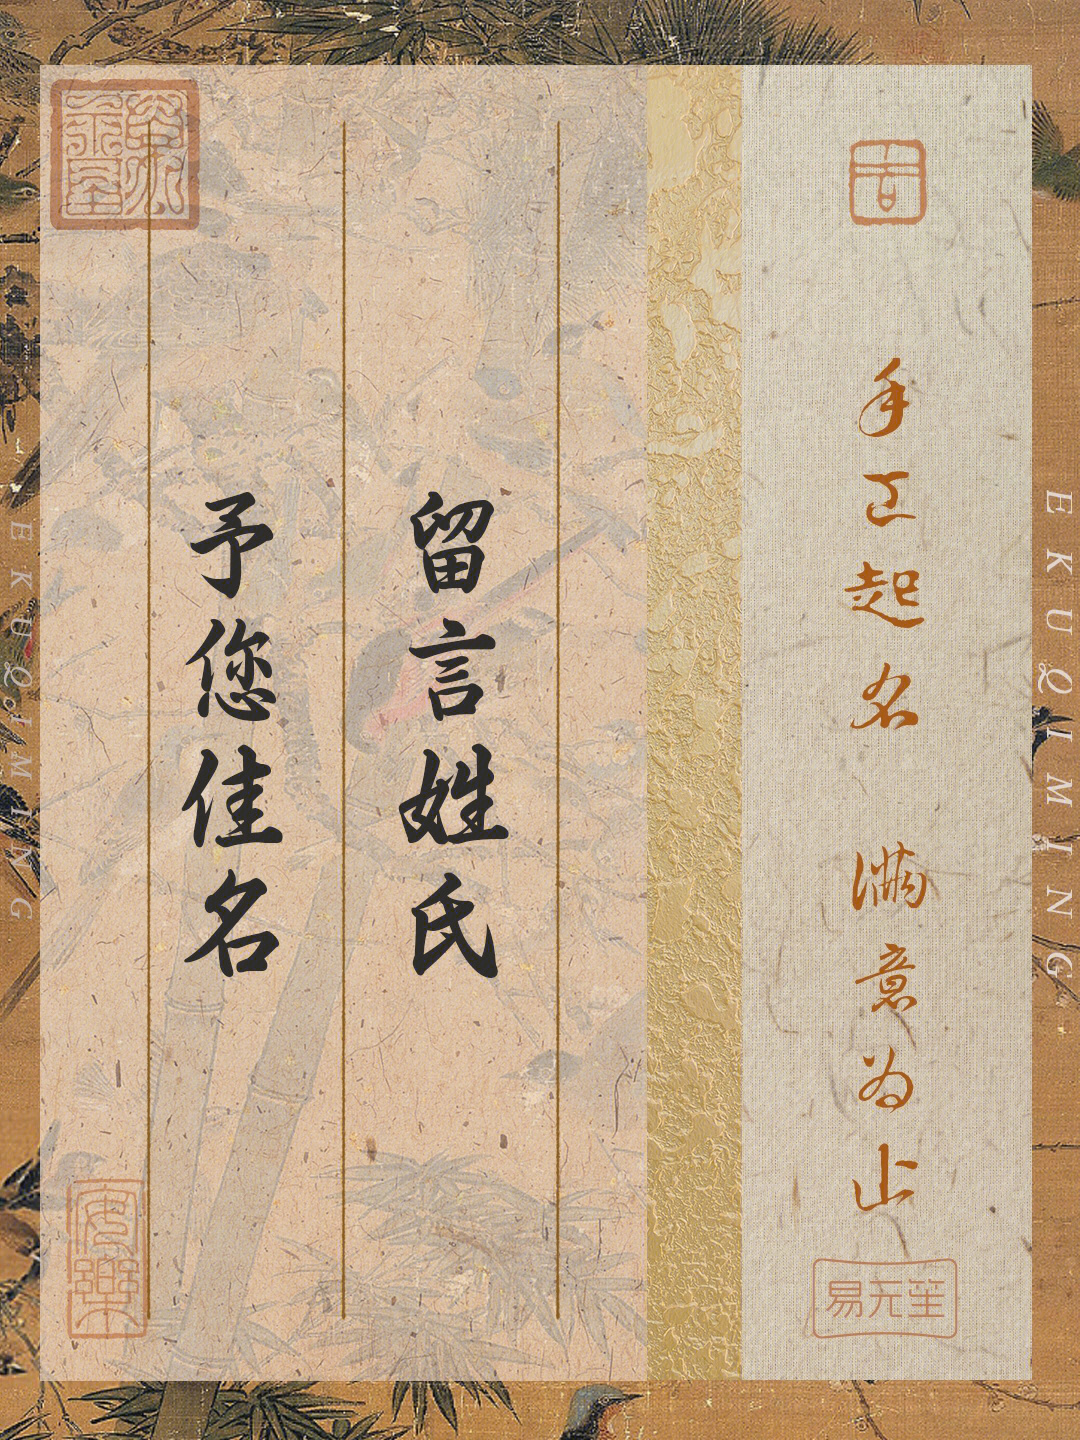 吉
手工起名 满意为止
易元笙
留言姓氏
予您佳名
安樂
EKUQIMING
EKUQIMING